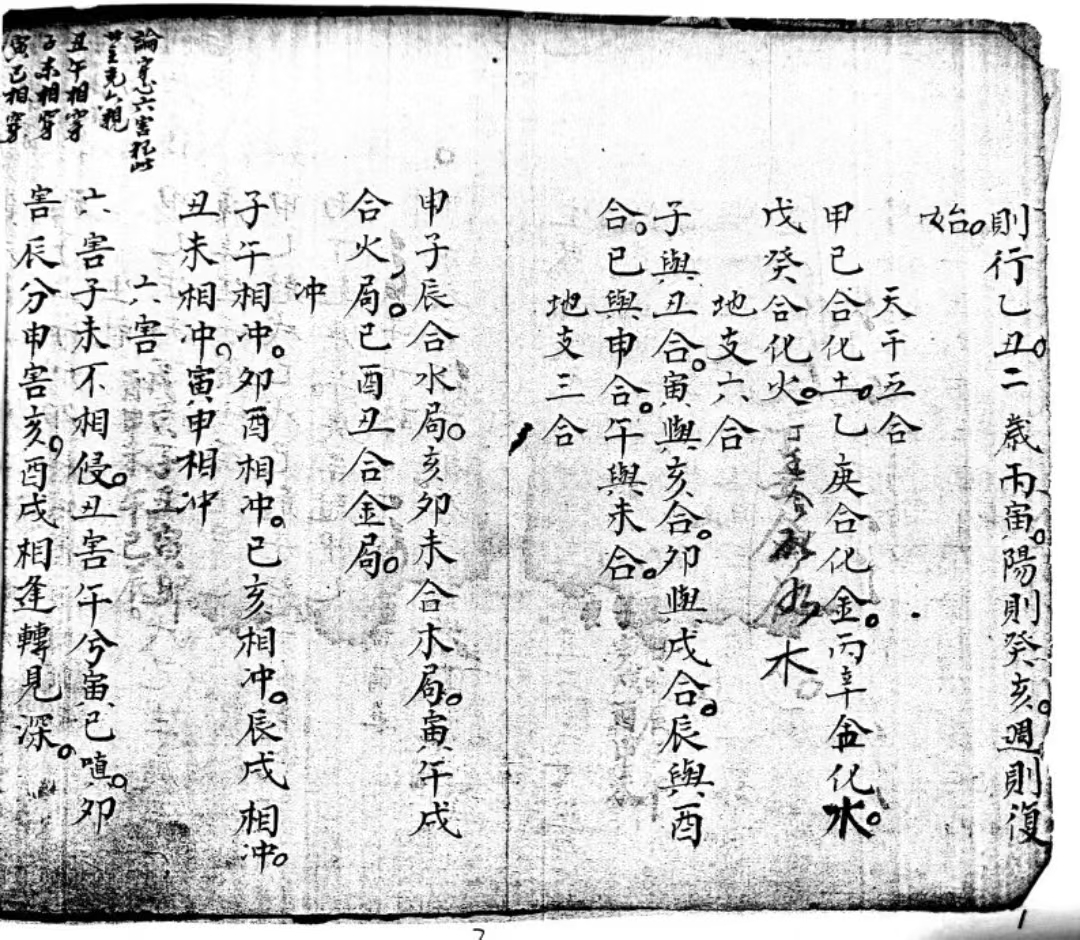 則行乙丑。二歳丙寅。陽則癸亥。週則復
始。
天干五合
甲己合化土。乙庚合化金。丙辛合化水。
戊癸合化火。丁壬合化木
地支六合
子與丑合。寅與亥合。卯與戌合。辰與酉
合。巳與申合。午與未合。
地支三合
申子辰合水局。亥卯未合木局。寅午戌
合火局。巳酉丑合金局。
冲
子午相冲。卯酉相冲。巳亥相冲。辰戌相冲。
丑未相冲。寅申相冲
六害
六害子未不相侵。丑害午兮寅巳嗔。卯
害辰兮申害亥。酉戌相逢轉見深。
論六害犯此
六親
丑午相穿
子未相穿
寅巳相穿